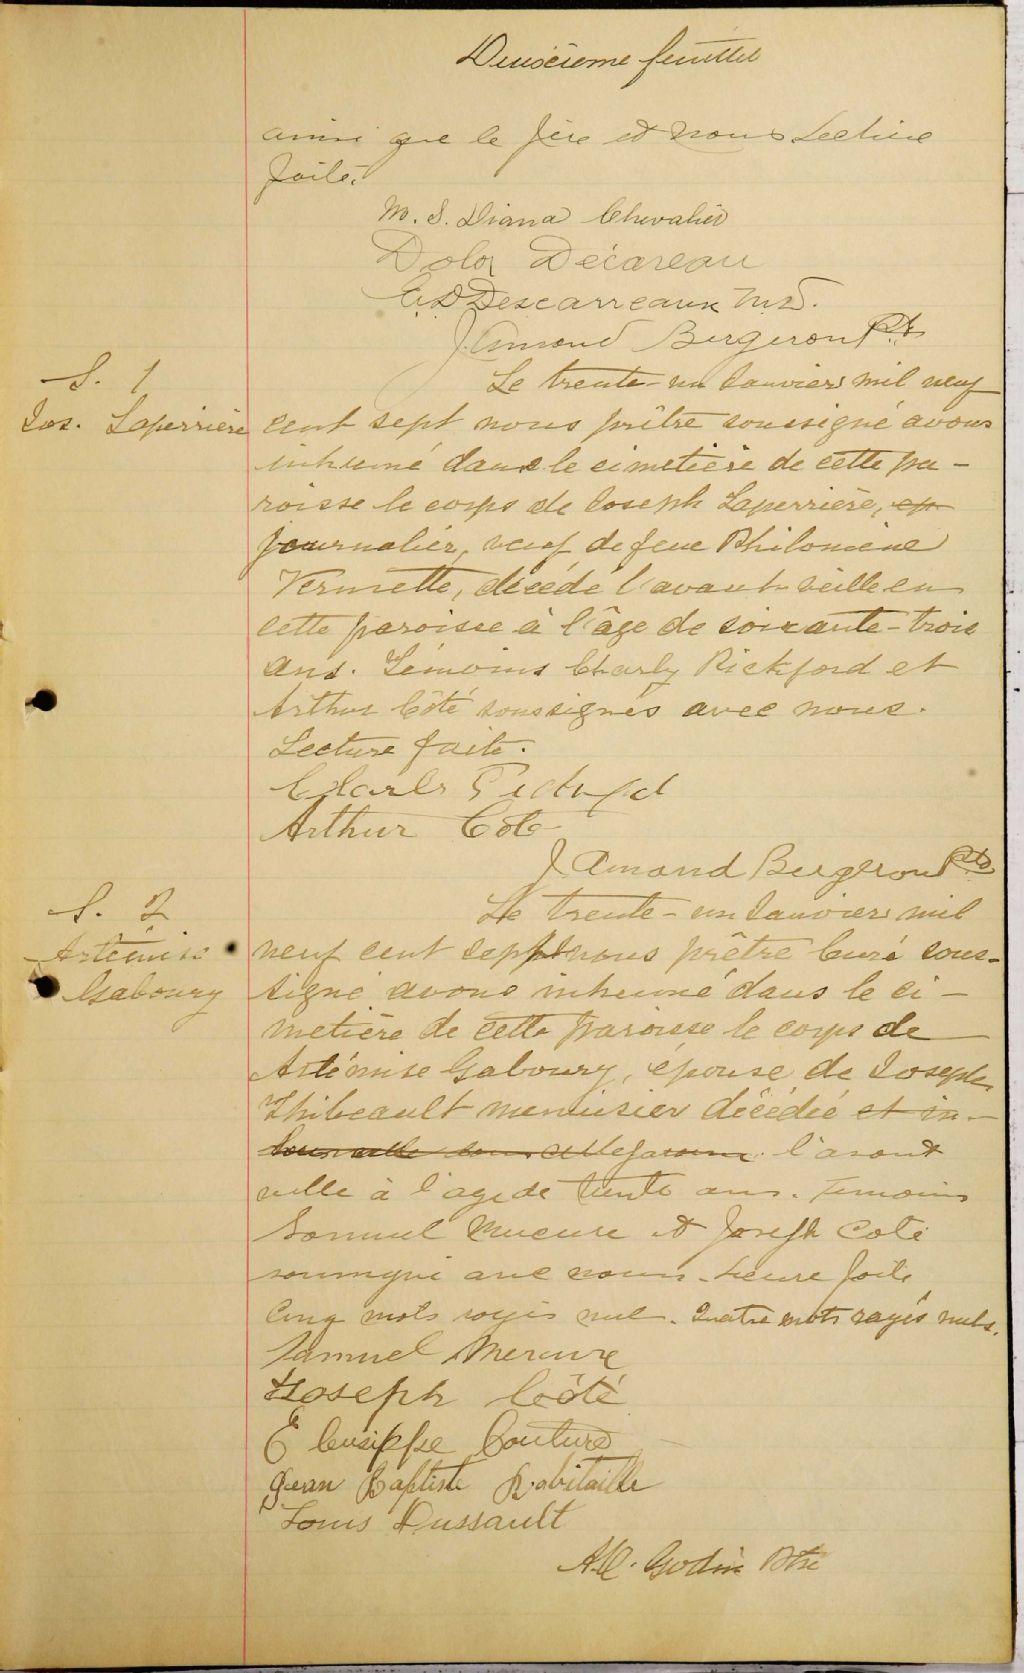 Deuxième feuillet
ainsi que le père et nous Lecture
faite.
M. S. Diana Chevalier
Dolor Décareau
E. D Descarreaux M.D.
J. Amand Bergeron Ptr
S. 1
Jos. Laperrière
Le trente-un Janvier mil neuf
cent sept nous prêtre soussigné avons
inhumé dans le cimetière de cette pa-
roisse le corps de Joseph Laperrière,
journalier, veuf de feue Philomène
Vermette, décédé l'avant veille en
cette paroisse à l'âge de soixante-trois
ans. Témoins Charly Pickford et
Arthur Côté soussignés avec nous.
Lecture faite.
Charls
Arthur Cote
J Amand Bergeron Ptr
S. 2
Artémise
Gaboury
Le trente-un Janvier mil
neuf cent sept nous prêtre Curé sous-
signé avons inhumé dans le ci-
metière de cette paroisse le corps de
Artémise Gaboury, épouse de Joseph
Thibeault menuisier décédée et in-
l'avant
veille à l'age de trente ans. Temoins
Samuel Mercure et Joseph Coté
soussigné avec nous. Lecture faite
Cinq mots rayés nul. Quatre mots rayés nuls.
Samuel Mercure
Joseph Côté
E Cusippe Couture
Jean Baptiste Robitaille
Louis Dussault
Godin Ptre